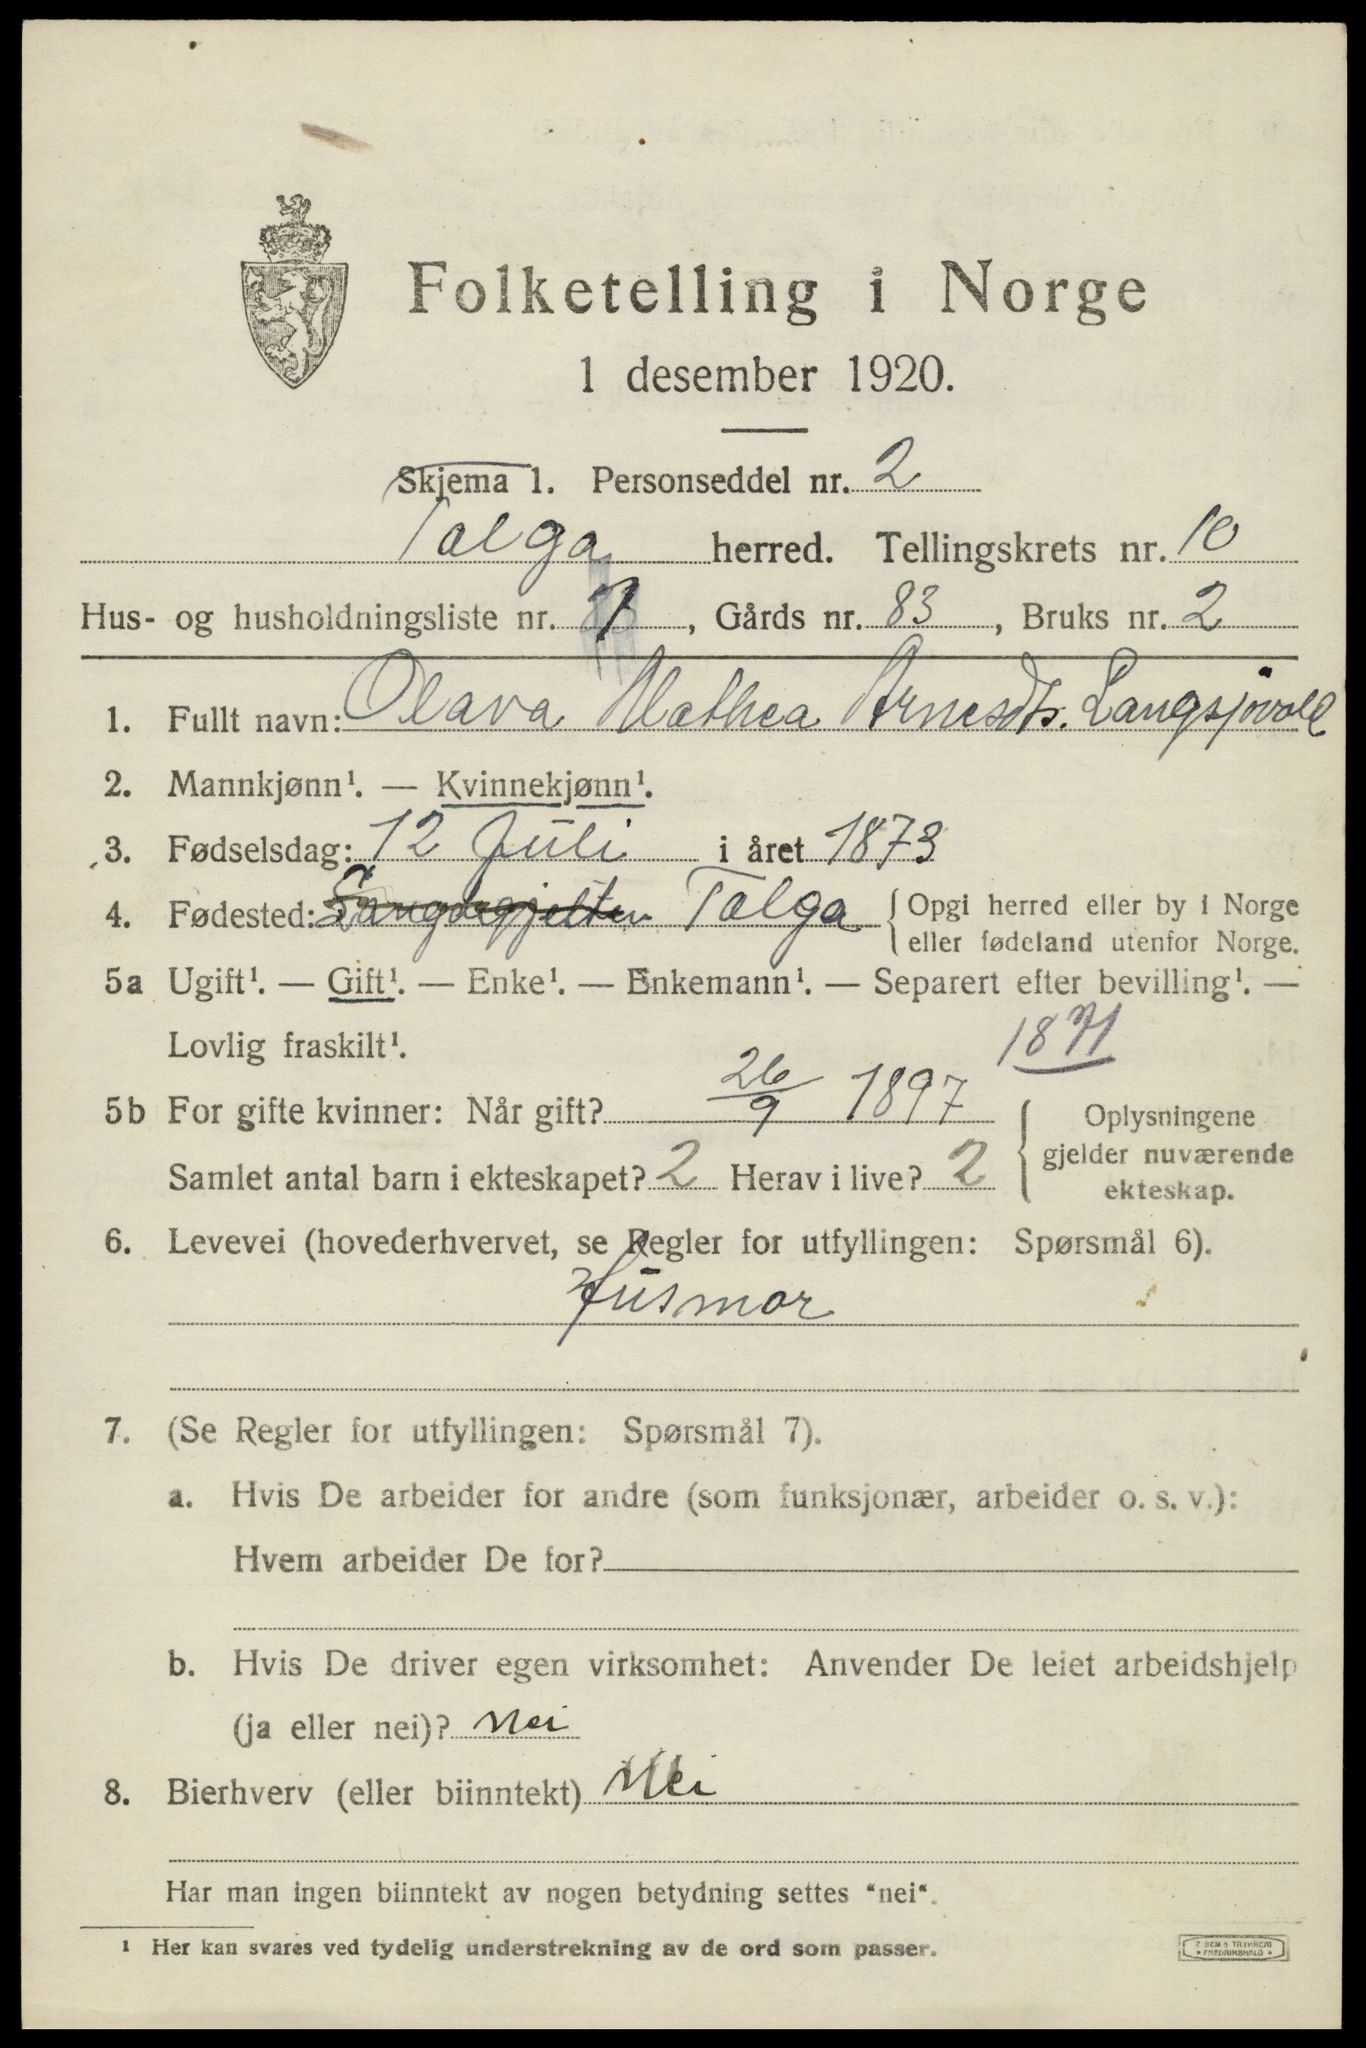 Folketelling i Norge
1 desember 1920.
Skjema 1. Personseddel nr. 2
Tolga herred. Tellingskrets nr. 10
Hus- og husholdningsliste nr. , Gårds nr. 83, Bruks nr. 2
1. Fullt navn: Olava Mathea Arnesdtr. Langsjøvold
2. Mannkjønn¹. — Kvinnekjønn¹.
3. Fødselsdag: 12 Juli i året 1873
4. Fødested: Tolga { Opgi herred eller by i Norge
eller fødeland utenfor Norge.
5a Ugift¹. — Gift¹. — Enke¹. — Enkemann¹. — Separert efter bevilling¹. —
Lovlig fraskilt¹.
1871
5b For gifte kvinner: Når gift? 26/9 1897 { Oplysningene
gjelder nuværende
ekteskap.
Samlet antal barn i ekteskapet? 2 Herav i live? 2
6. Levevei (hovederhvervet, se Regler for utfyllingen: Spørsmål 6).
Husmor
7. (Se Regler for utfyllingen: Spørsmål 7).
a. Hvis De arbeider for andre (som funksjonær, arbeider o. s. v.):
Hvem arbeider De for?
b. Hvis De driver egen virksomhet: Anvender De leiet arbeidshjelp
(ja eller nei)? nei
8. Bierhverv (eller biinntekt) Nei
Har man ingen biinntekt av nogen betydning settes "nei".
¹ Her kan svares ved tydelig understrekning av de ord som passer.